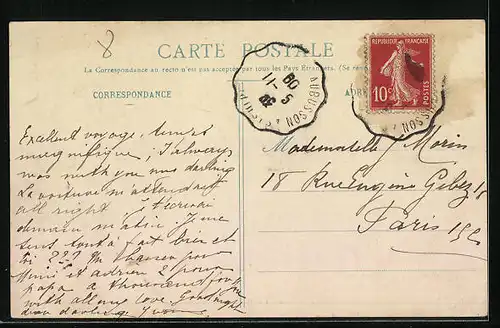 8
CARTE POSTALE
La Correspondance au recto n'est pas acceptée par tous les Pays Étrangers. (Se
CORRESPONDANCE
ADR
REPUBLIQUE FRANÇAISE
10c
POSTES
AUBUSSON
11 5 09
Excellent voyage, temps
magnifique, I always
was with you my darling
La voiture m'attendait
all right
demain matin Je me
sens tout à fait bien et
toi ???
Mimi et 2 pour
papa a thousand for you
with all my love. Good night
dear darling Yvonne
Mademoiselle Morin
18 Rue Eugène Gibez 18
Paris 15e